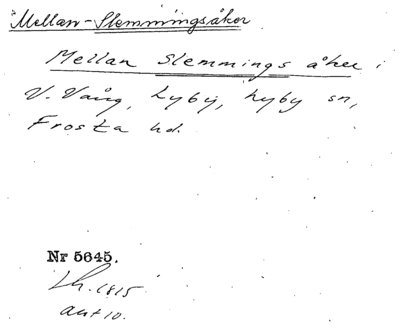 Mellan-Slemmingsåker
Mellan Slemmings åker i
V. Vång, Lyby, Lyby sn,
Frosta hd.
Nr 5645.
Lh. 1815
akt 10.